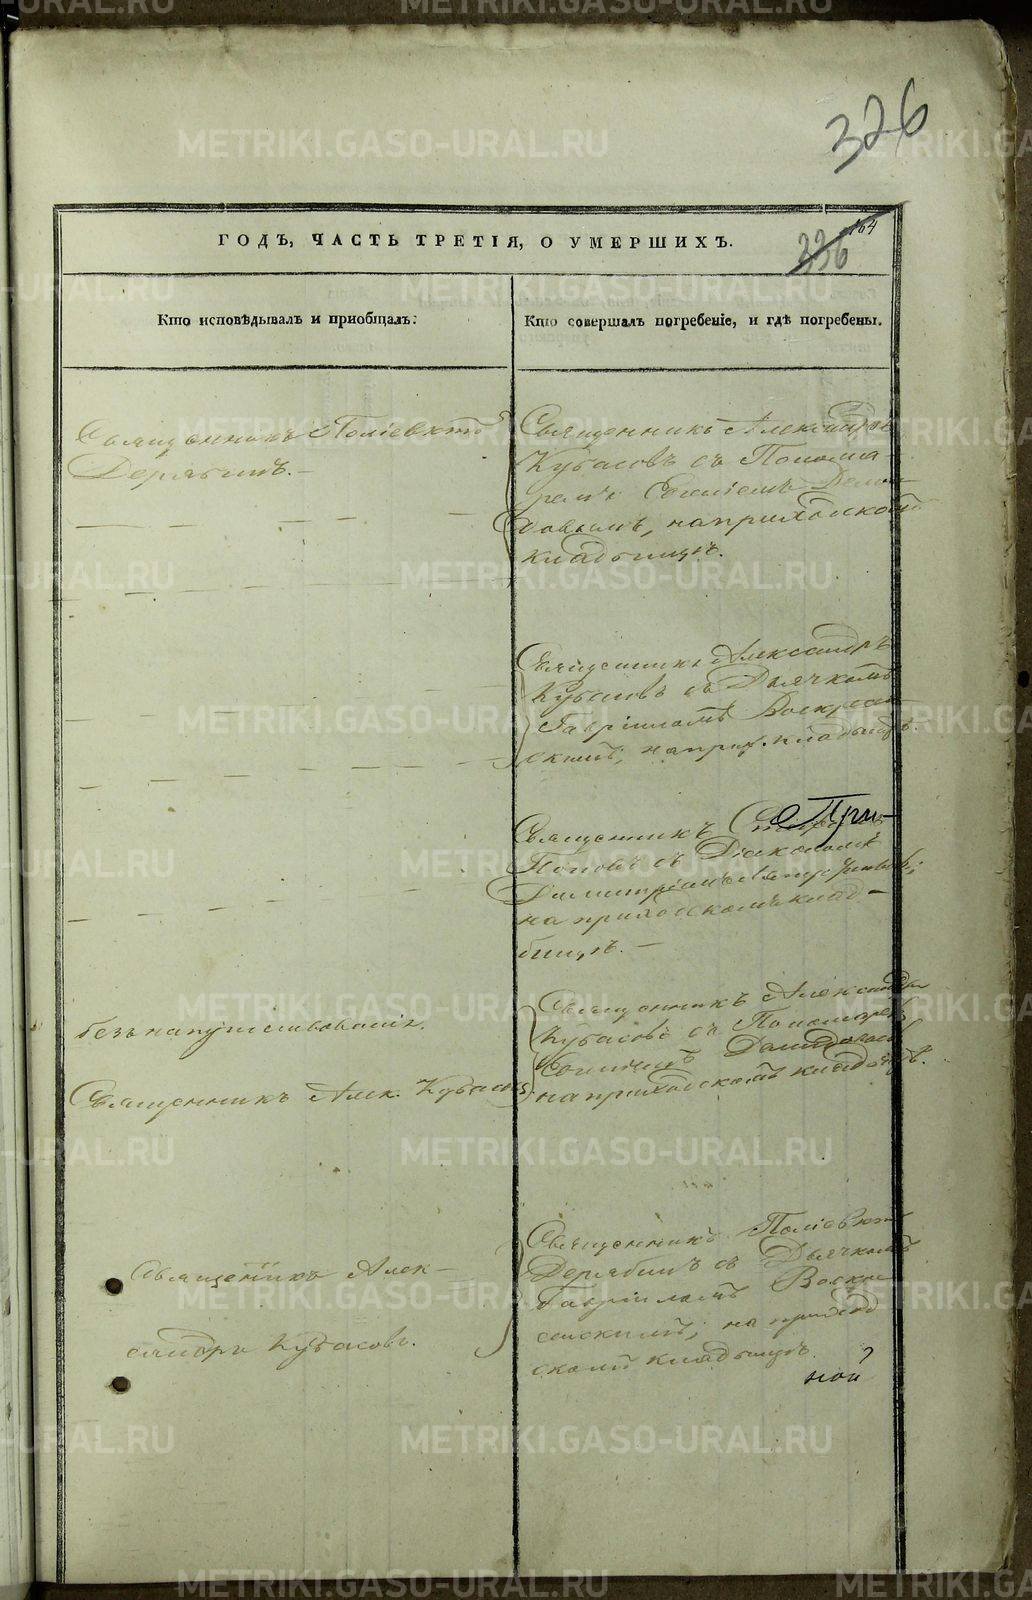 326
164
336
ГОДЪ, ЧАСТЬ ТРЕТІЯ, О УМЕРШИХЪ.
Кто исповѣдывалъ и пріобщалъ:
Кто совершалъ погребеніе, и гдѣ погребены.
Священникъ Поліевктъ
Дерябинъ.—
Священникъ Александръ
Кубасовъ съ Понома-
ремъ
довымъ, на приходскомъ
кладбищѣ.
Священникъ Александръ
Кубасовъ съ Дьячкомъ
Гавріиломъ Воскресен
скимъ, на прих. кладбищѣ.
Священникъ
При-
Поповъ съ Діакономъ
Димитріемъ
на приходскомъ клад-
бищѣ.—
безъ напутствованія.
Священникъ Алек. Кубасовъ
Священникъ Александръ
Кубасовъ съ Пономаремъ
Демидовымъ
на приходскомъ кладбищѣ.
Священникъ Алек-
сандръ Кубасовъ.
Священникъ Поліевктъ
Дерябинъ съ Дьячкомъ
Гавріиломъ Воскре
сенскимъ, на приход
скомъ кладбищѣ.
ной
METRIKI.GASO-URAL.RU